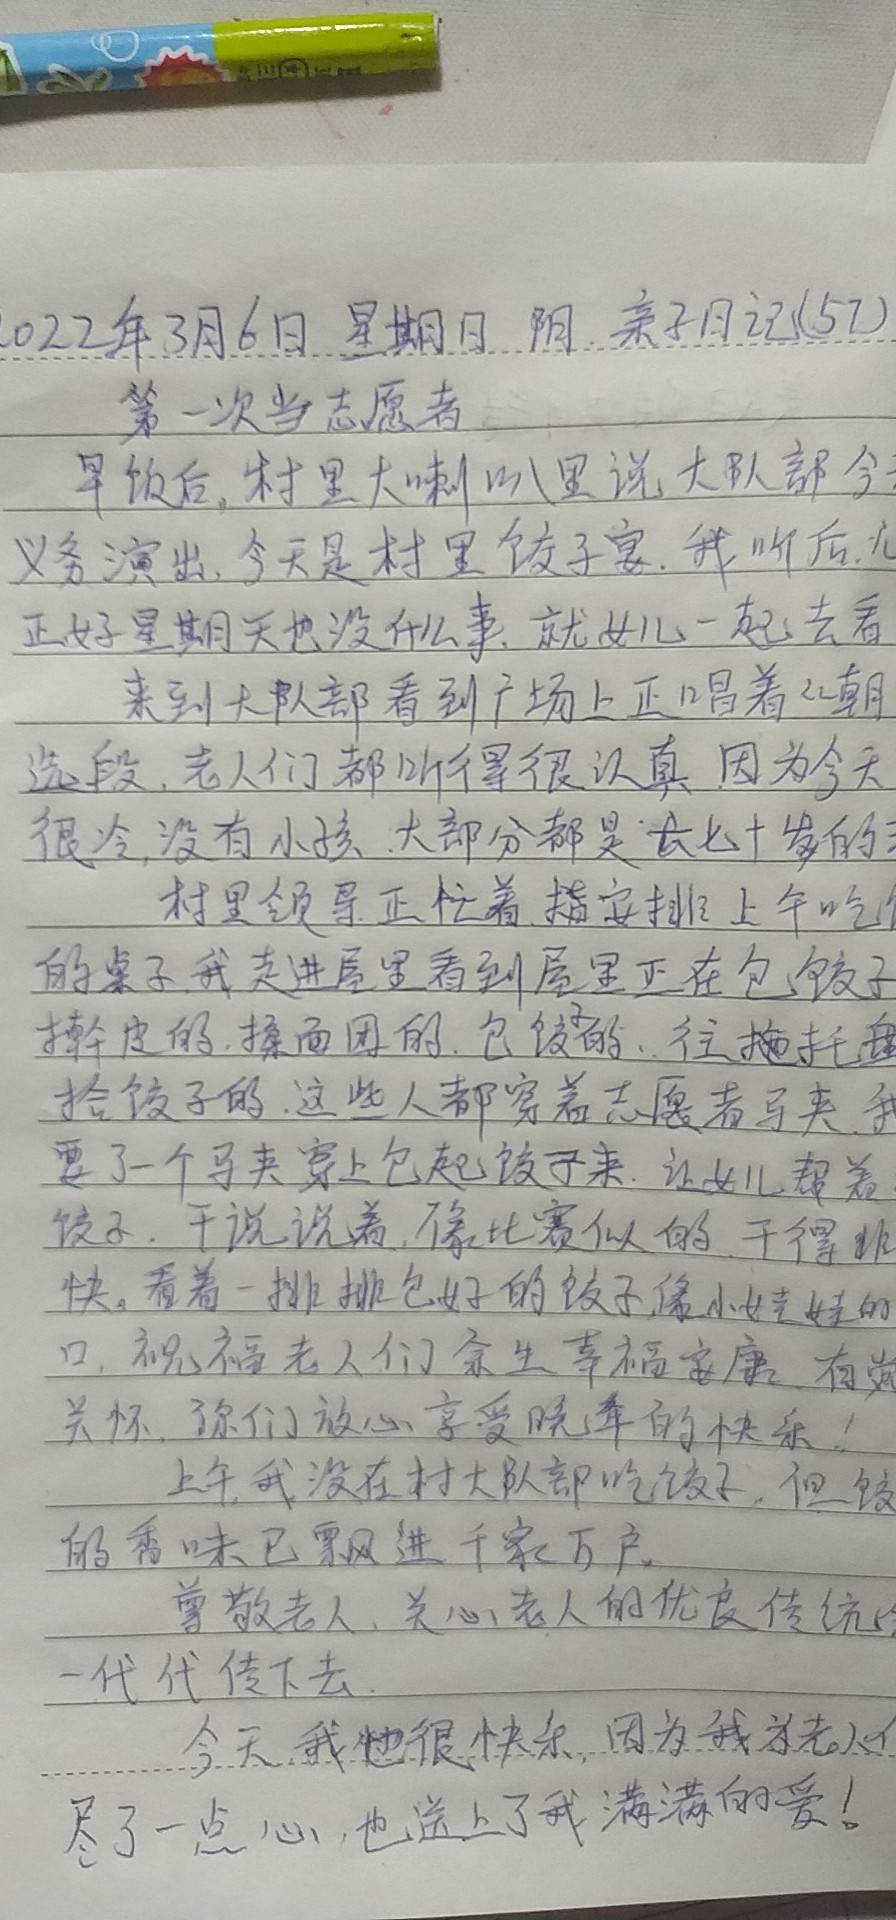 2022年3月6日 星期日 阴. 亲子日记(57)
第一次当志愿者
早饭后,村里大喇叭里说,大队部今
义务演出,今天是村里饺子宴.我听后,
正好星期天也没什么事,就女儿一起去看
来到大队部看到广场上正唱着《朝
选段,老人们都听得很认真,因为今天
很冷,没有小孩,大部分都是七十岁的
村里领导正忙着,指安排上午吃
的桌子,我走进屋里看到屋里正在包饺子
擀皮的,揉面团的,包饺子的,往托盘
拾饺子的,这些人都穿着志愿者马夹,我
要了一个马夹穿上包起饺子来,让女儿帮着
饺子.干说说着,像比赛似的,干得非
快。看着一排排包好的饺子,像小娃娃的
口,祝福老人们余生幸福安康,有党
关怀,你们放心享受晚年的快乐!
上午,我没在村大队部吃饺子,但饺
的香味已飘进千家万户。
尊敬老人、关心老人的优良传统
一代代传下去.
今天,我也很快乐,因为我为老人们
尽了一点心,也送上了我满满的爱!